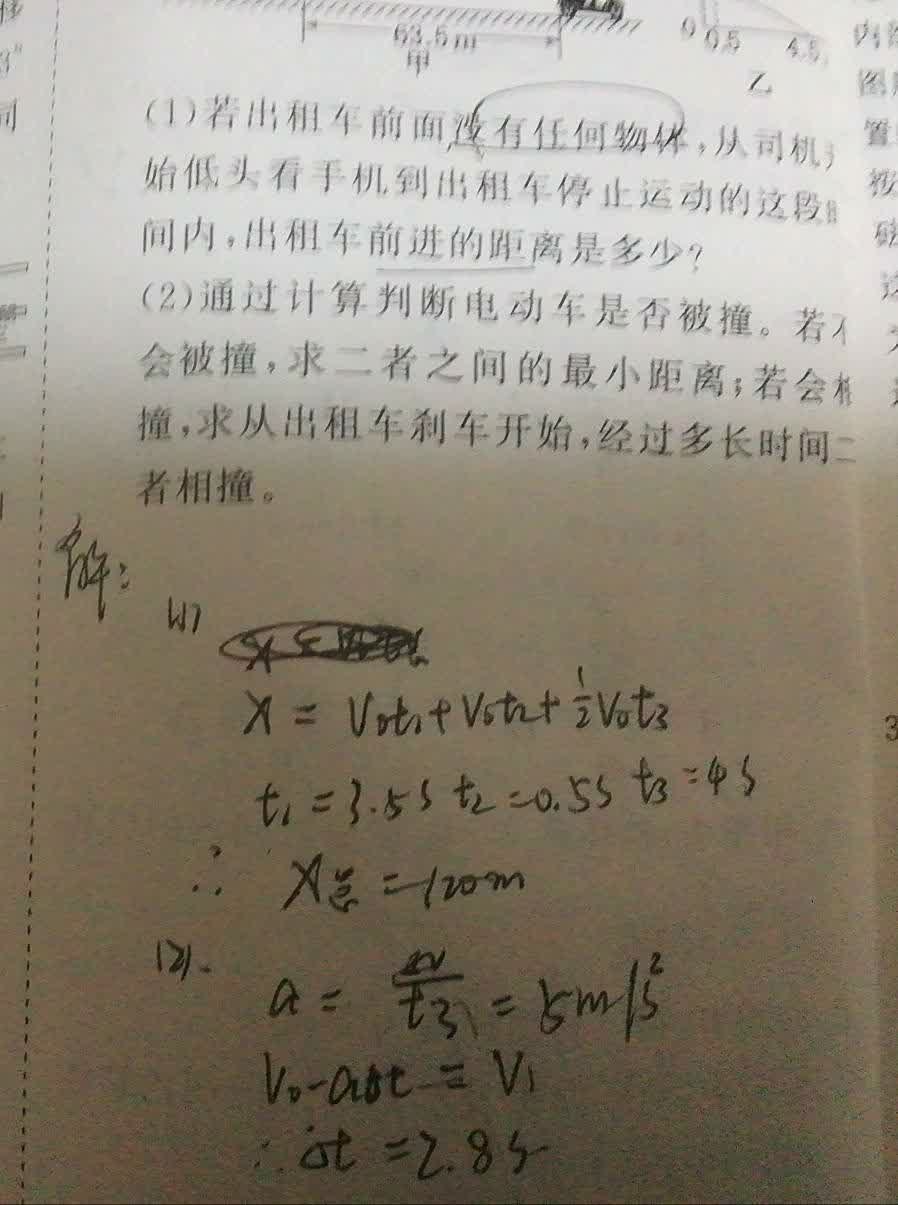 63.5 m
甲
0 0.5 4.5
乙
(1)若出租车前面没有任何物体,从司机
始低头看手机到出租车停止运动的这段
间内,出租车前进的距离是多少?
(2)通过计算判断电动车是否被撞。若
会被撞,求二者之间的最小距离;若会
撞,求从出租车刹车开始,经过多长时间二
者相撞。
解:
(1)
X = V₀t₁+V₀t₂+½V₀t₃
t₁=3.5s t₂=0.5s t₃=4s
∴ X总=120m
(2).
a = Δv/t₃ = 5m/s²
V₀-aΔt = V₁
∴Δt=2.8s
内
图
置
按
磁
这
3